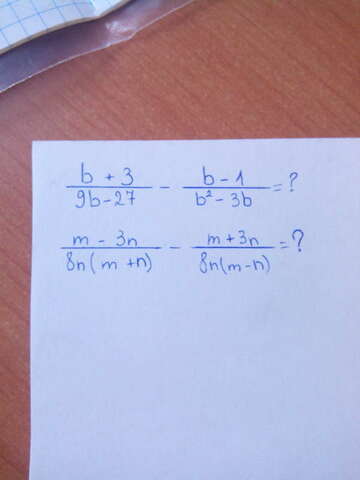 b + 3 / 9b - 27 - b - 1 / b² - 3b = ?
m - 3n / 8n(m + n) - m + 3n / 8n(m - n) = ?